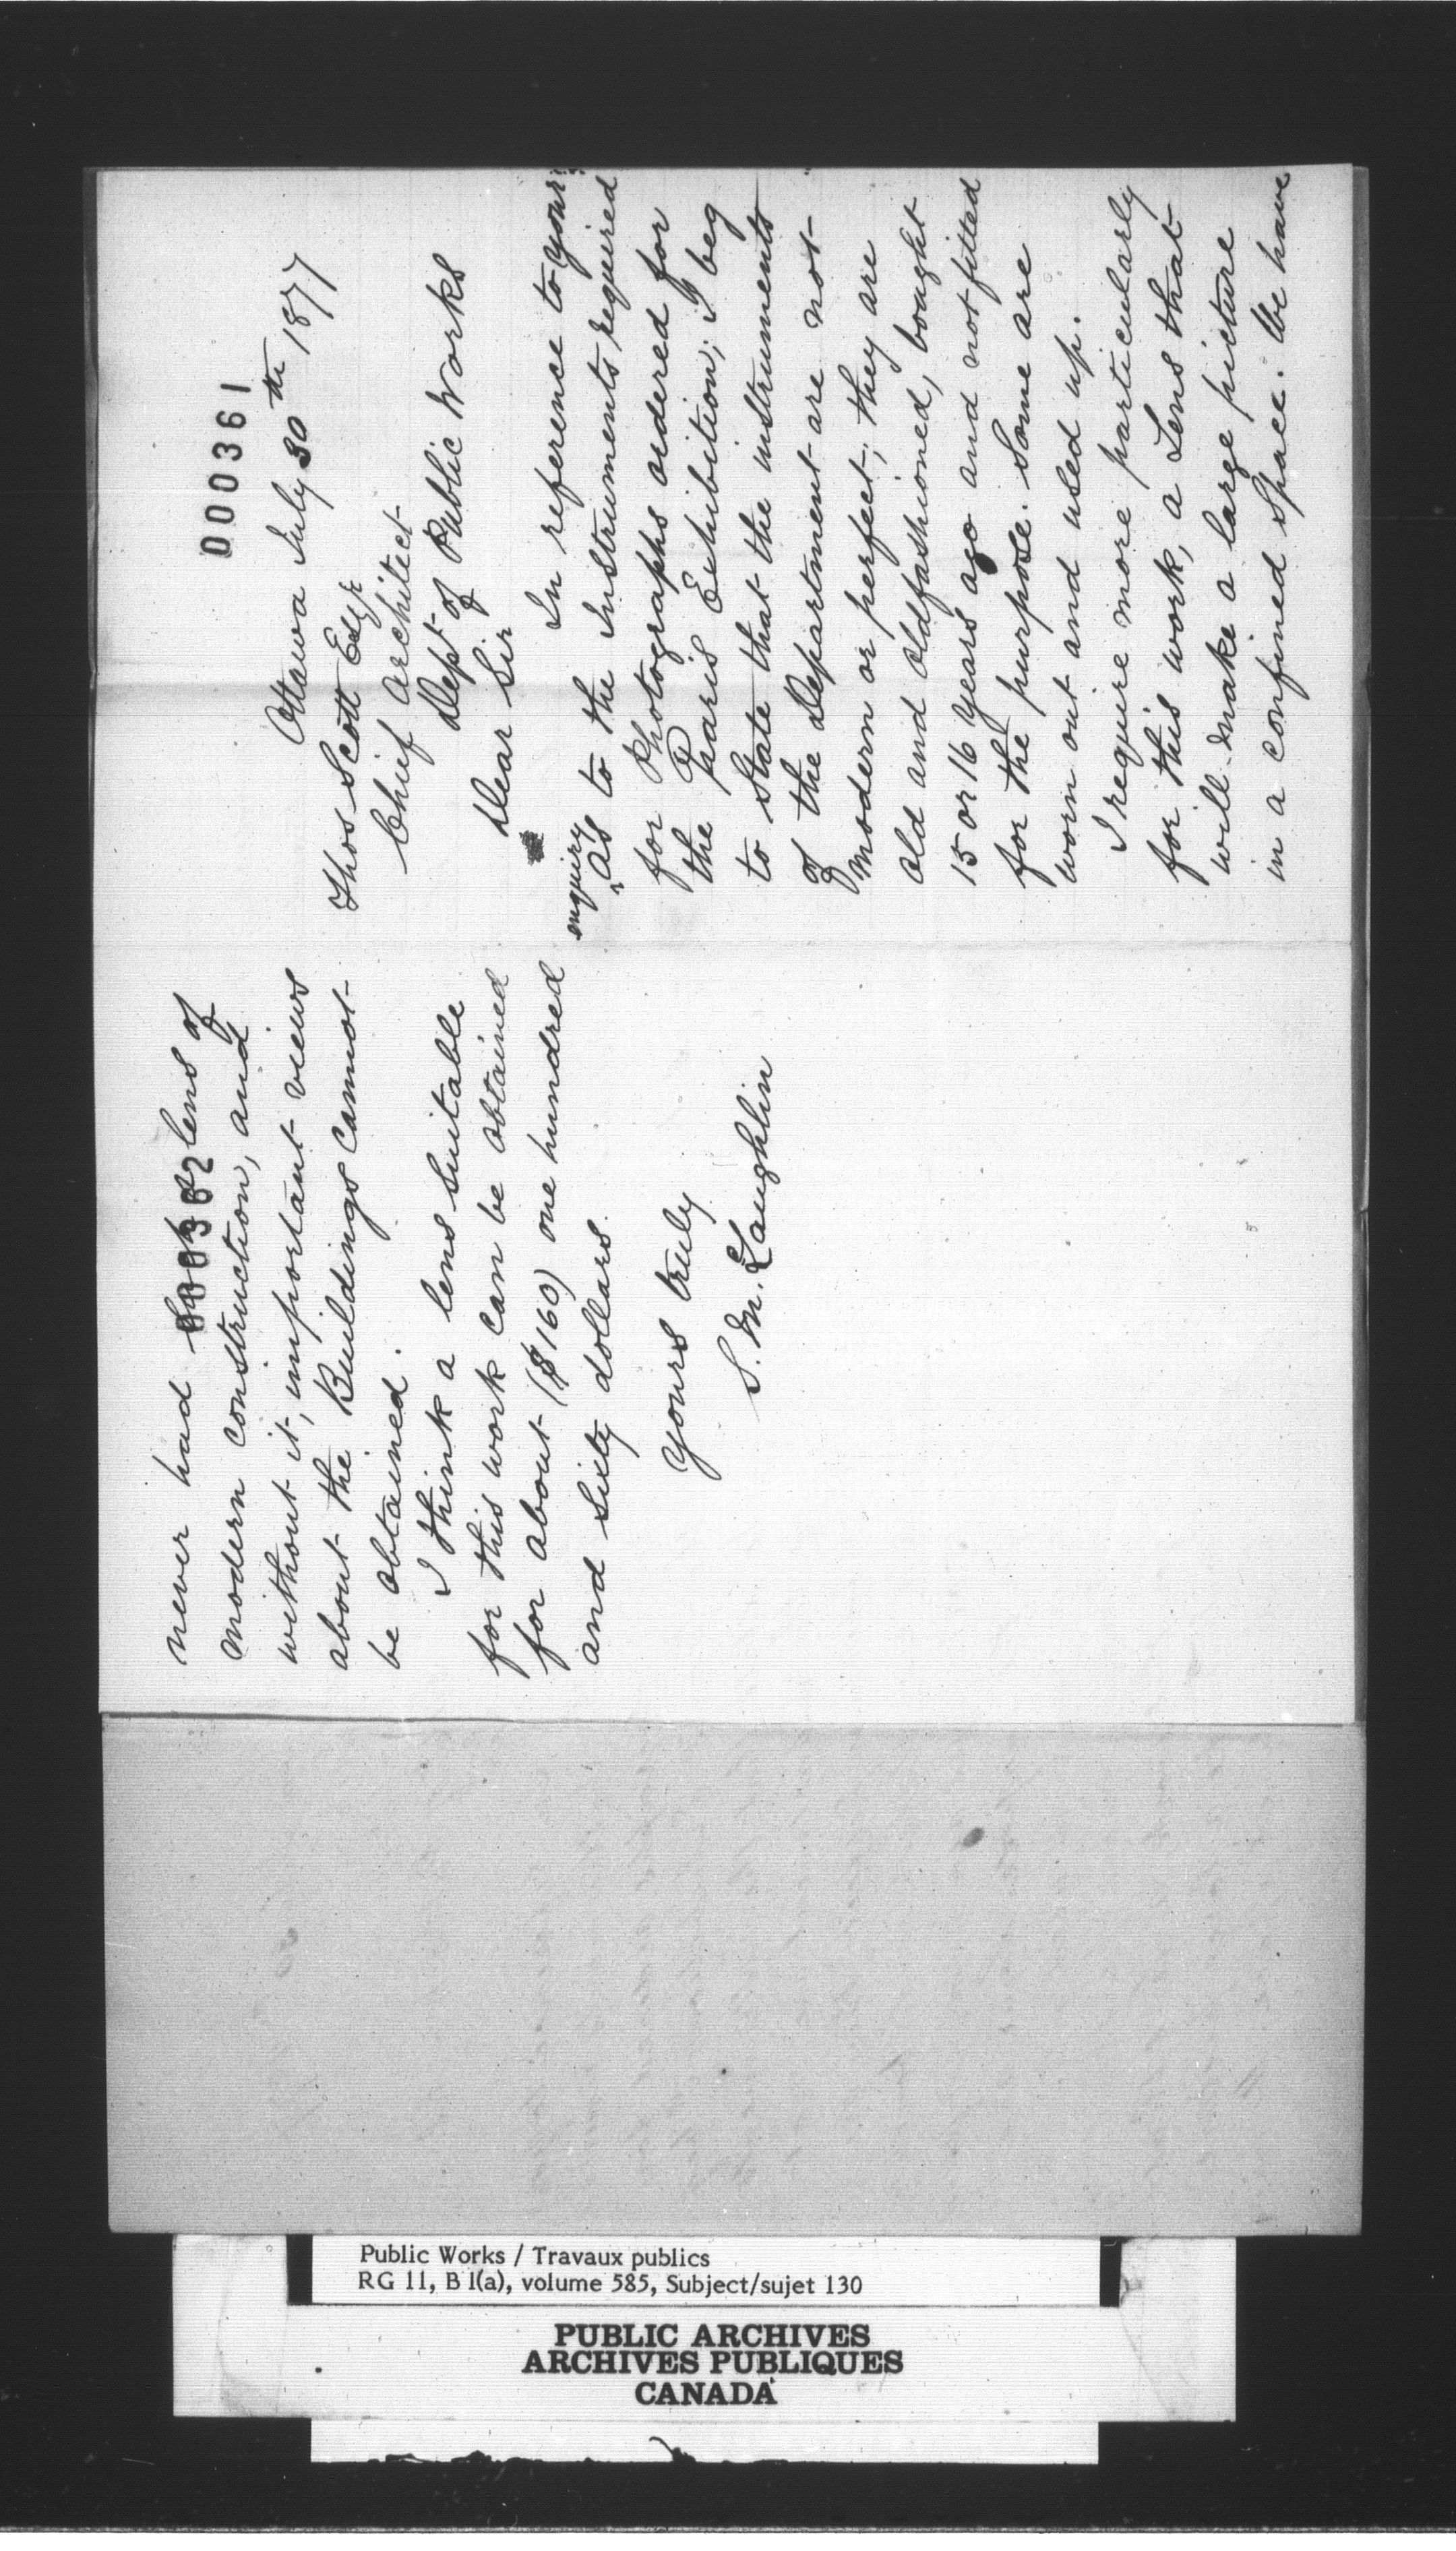 000361
Ottawa July 30th 1877
Thos Scott Esqr
Chief Architect
Dept of Public Works
Dear Sir
In reference to your
enquiry
^ as to the Instruments required
for Photographs ordered for
the Paris Exhibition; I beg
to State that the instruments
of the Department are not
modern or perfect; they are
old and oldfashioned, bought
15 or 16 years ago and not fitted
for the purpose. Some are
worn out and used up.
I require more particularly
for this work, a Lens that
will make a large picture
in a confined Space. We have
000362
never had lens of
modern construction, and
without it, important views
about the Buildings cannot
be obtained.
I think a lens suitable
for this work can be obtained
for about ($160) one hundred
and sixty dollars.
yours truly
S. McLaughlin
Public Works / Travaux publics
RG 11, B 1(a), volume 585, Subject/sujet 130
PUBLIC ARCHIVES
ARCHIVES PUBLIQUES
CANADA